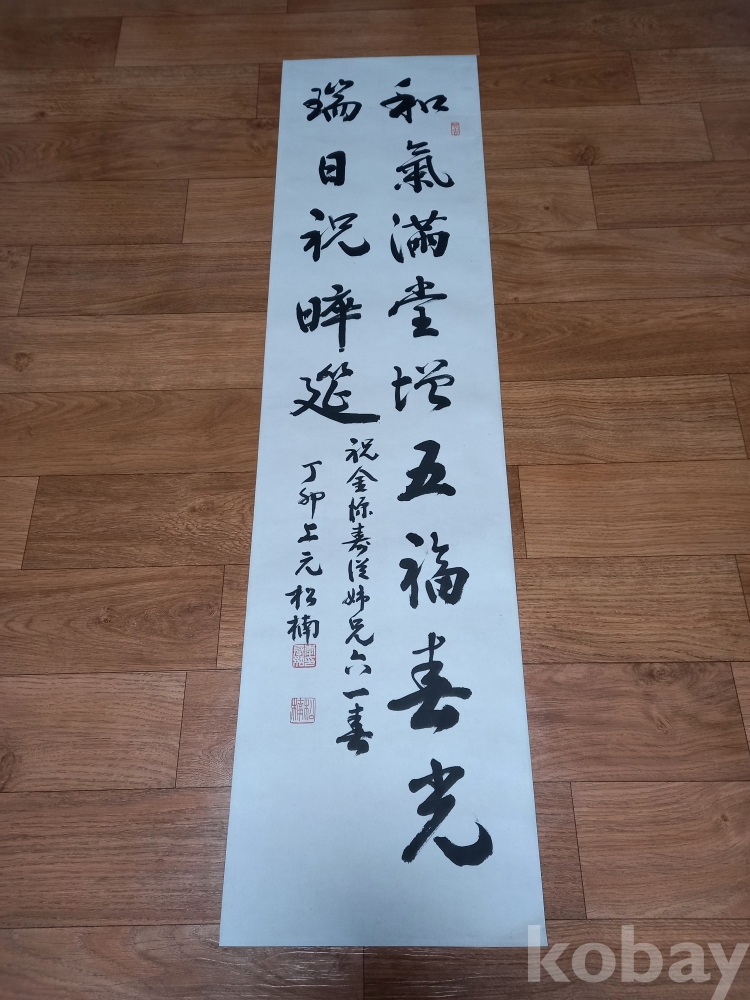 和氣滿堂增五福春光
瑞日祝晬筵
祝金源壽從姊兄六一春
丁卯上元松楠
kobay